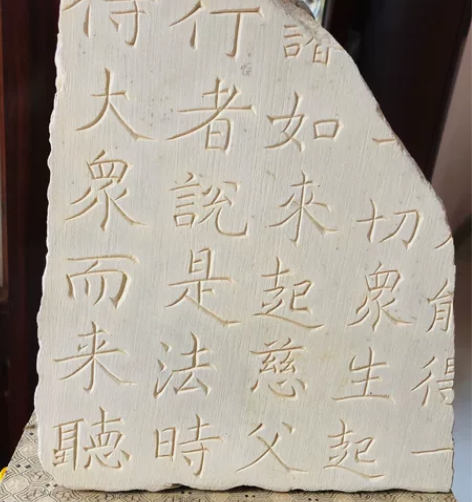 能得一
一切衆生起
如來起慈父
行者說是法時
大衆而来聽